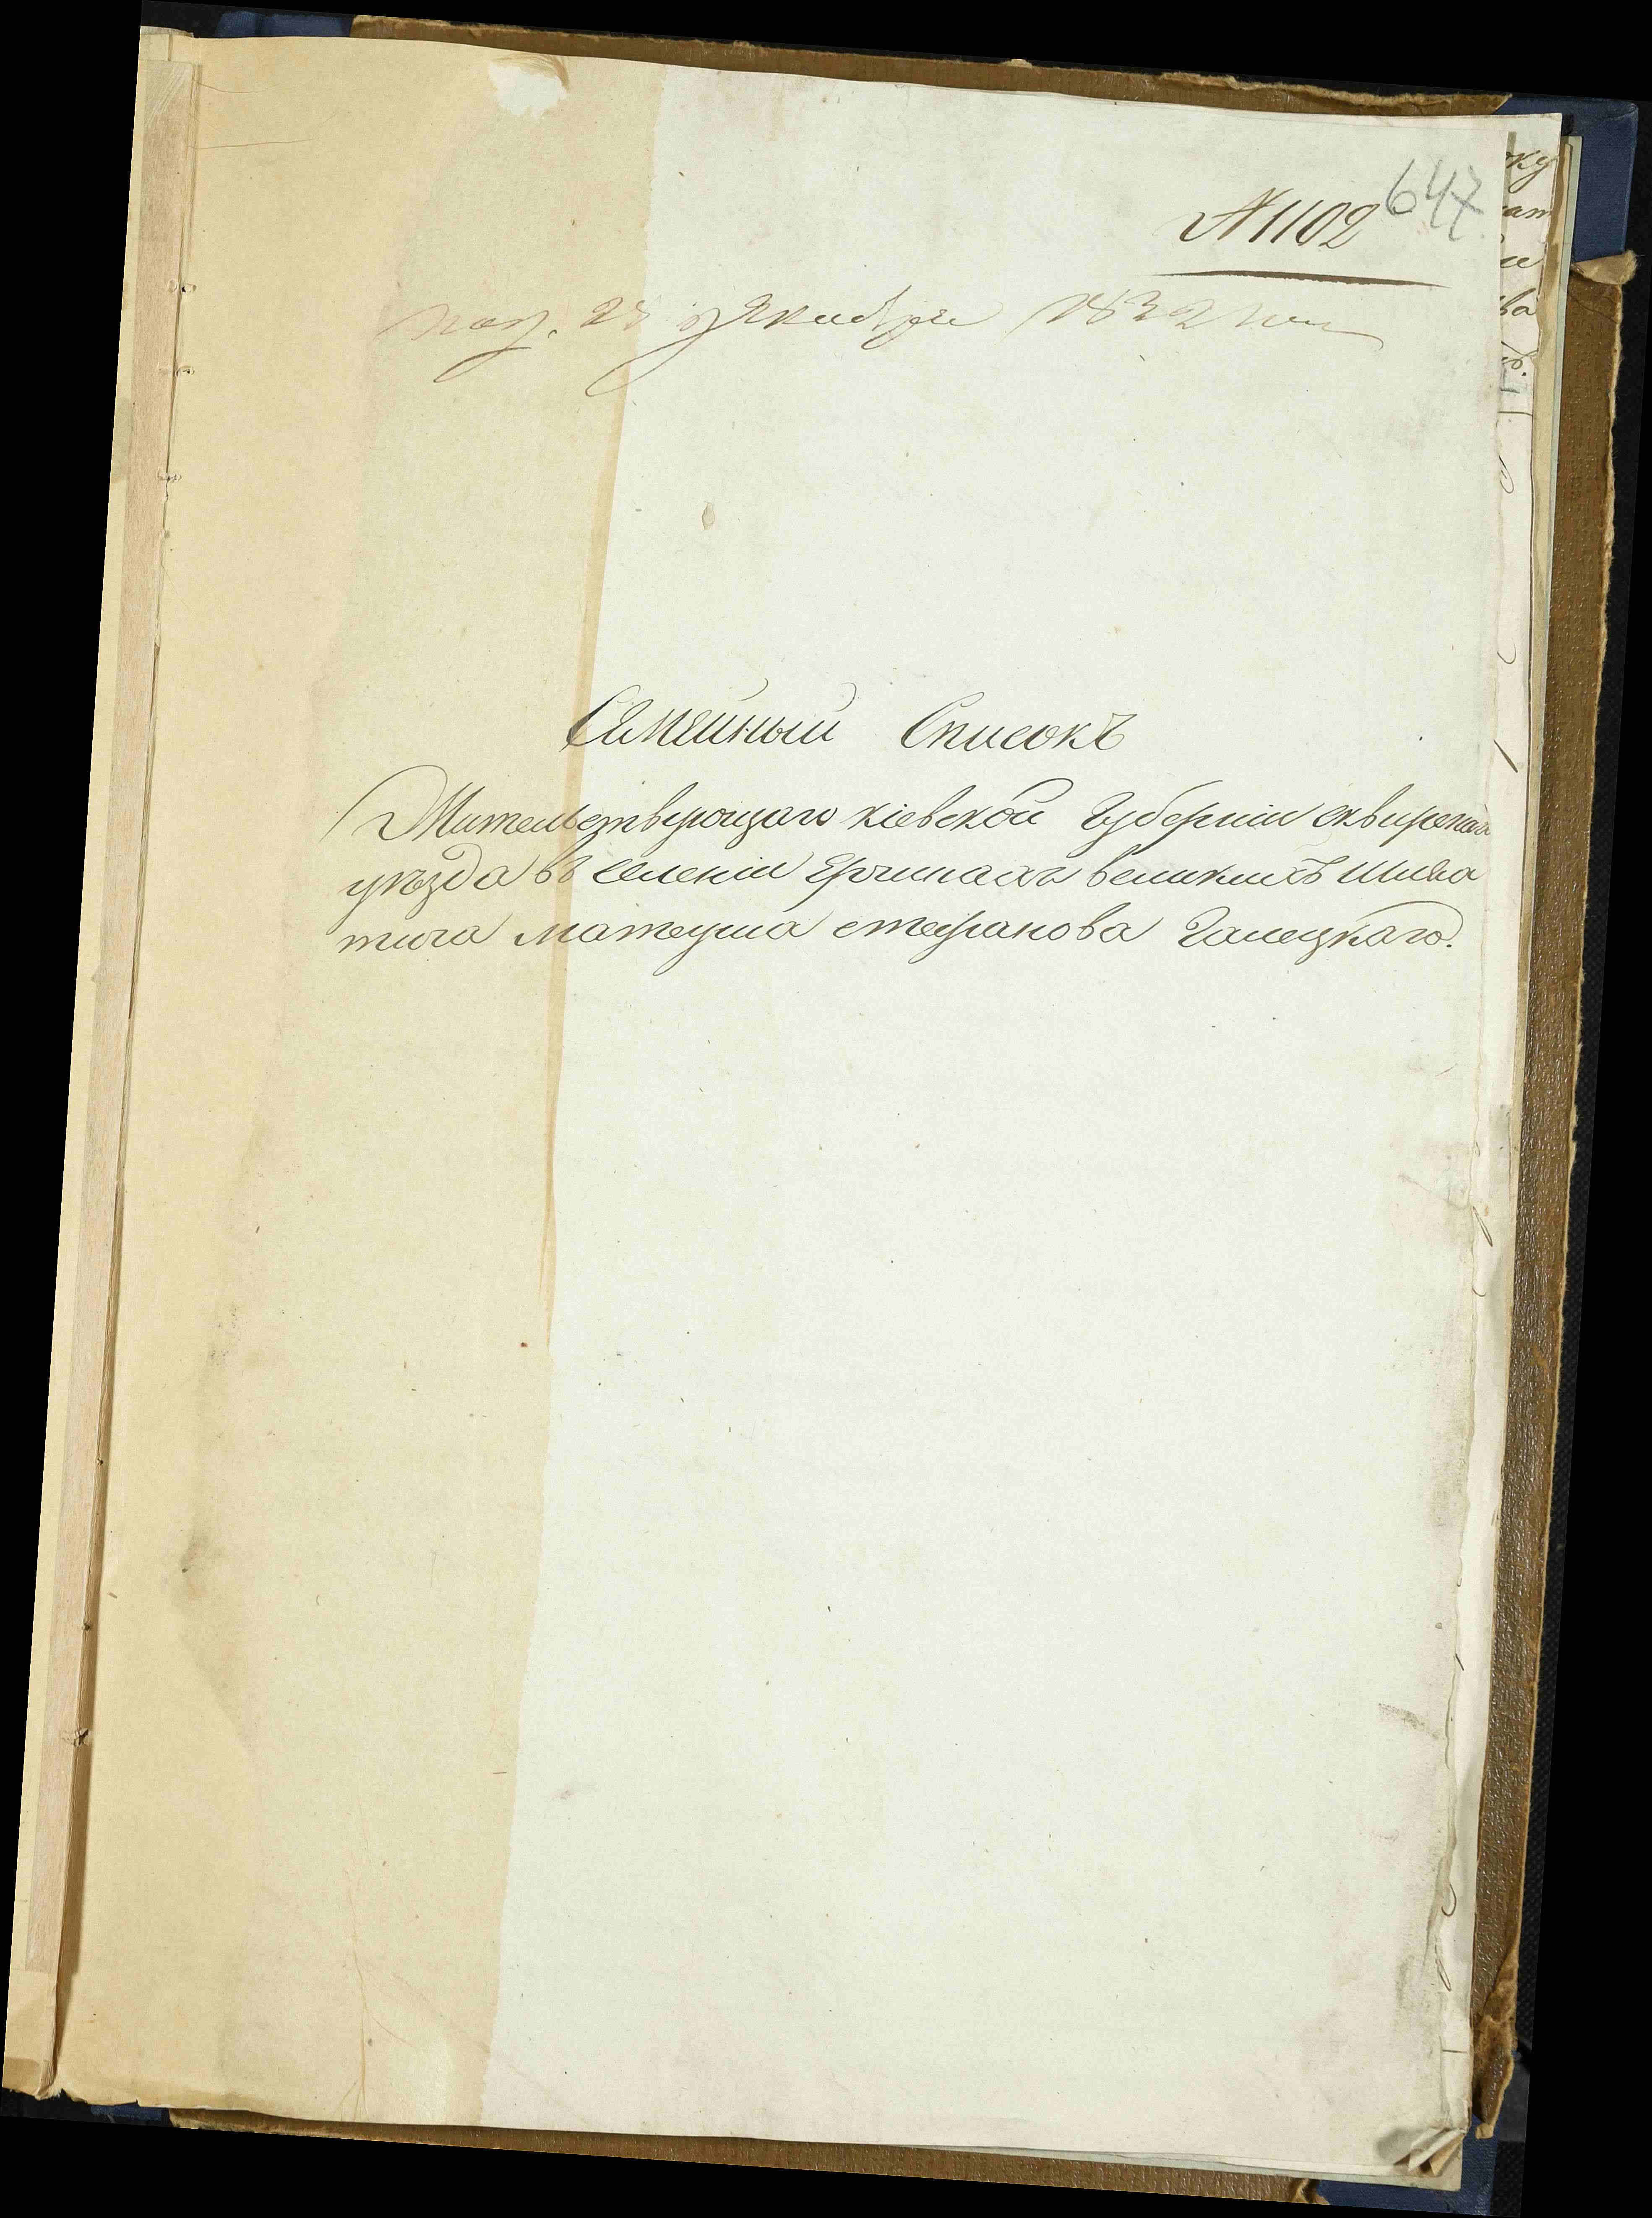 647
№ 1102
пол. 28 декабря 1832 года
Семейный Списокъ
Жительствующаго кіевской Губерніи сквирскаго
уѣзда въ селеніи Ерчикахъ великихъ Шлях
тича матеуша стефанова Галецкаго.